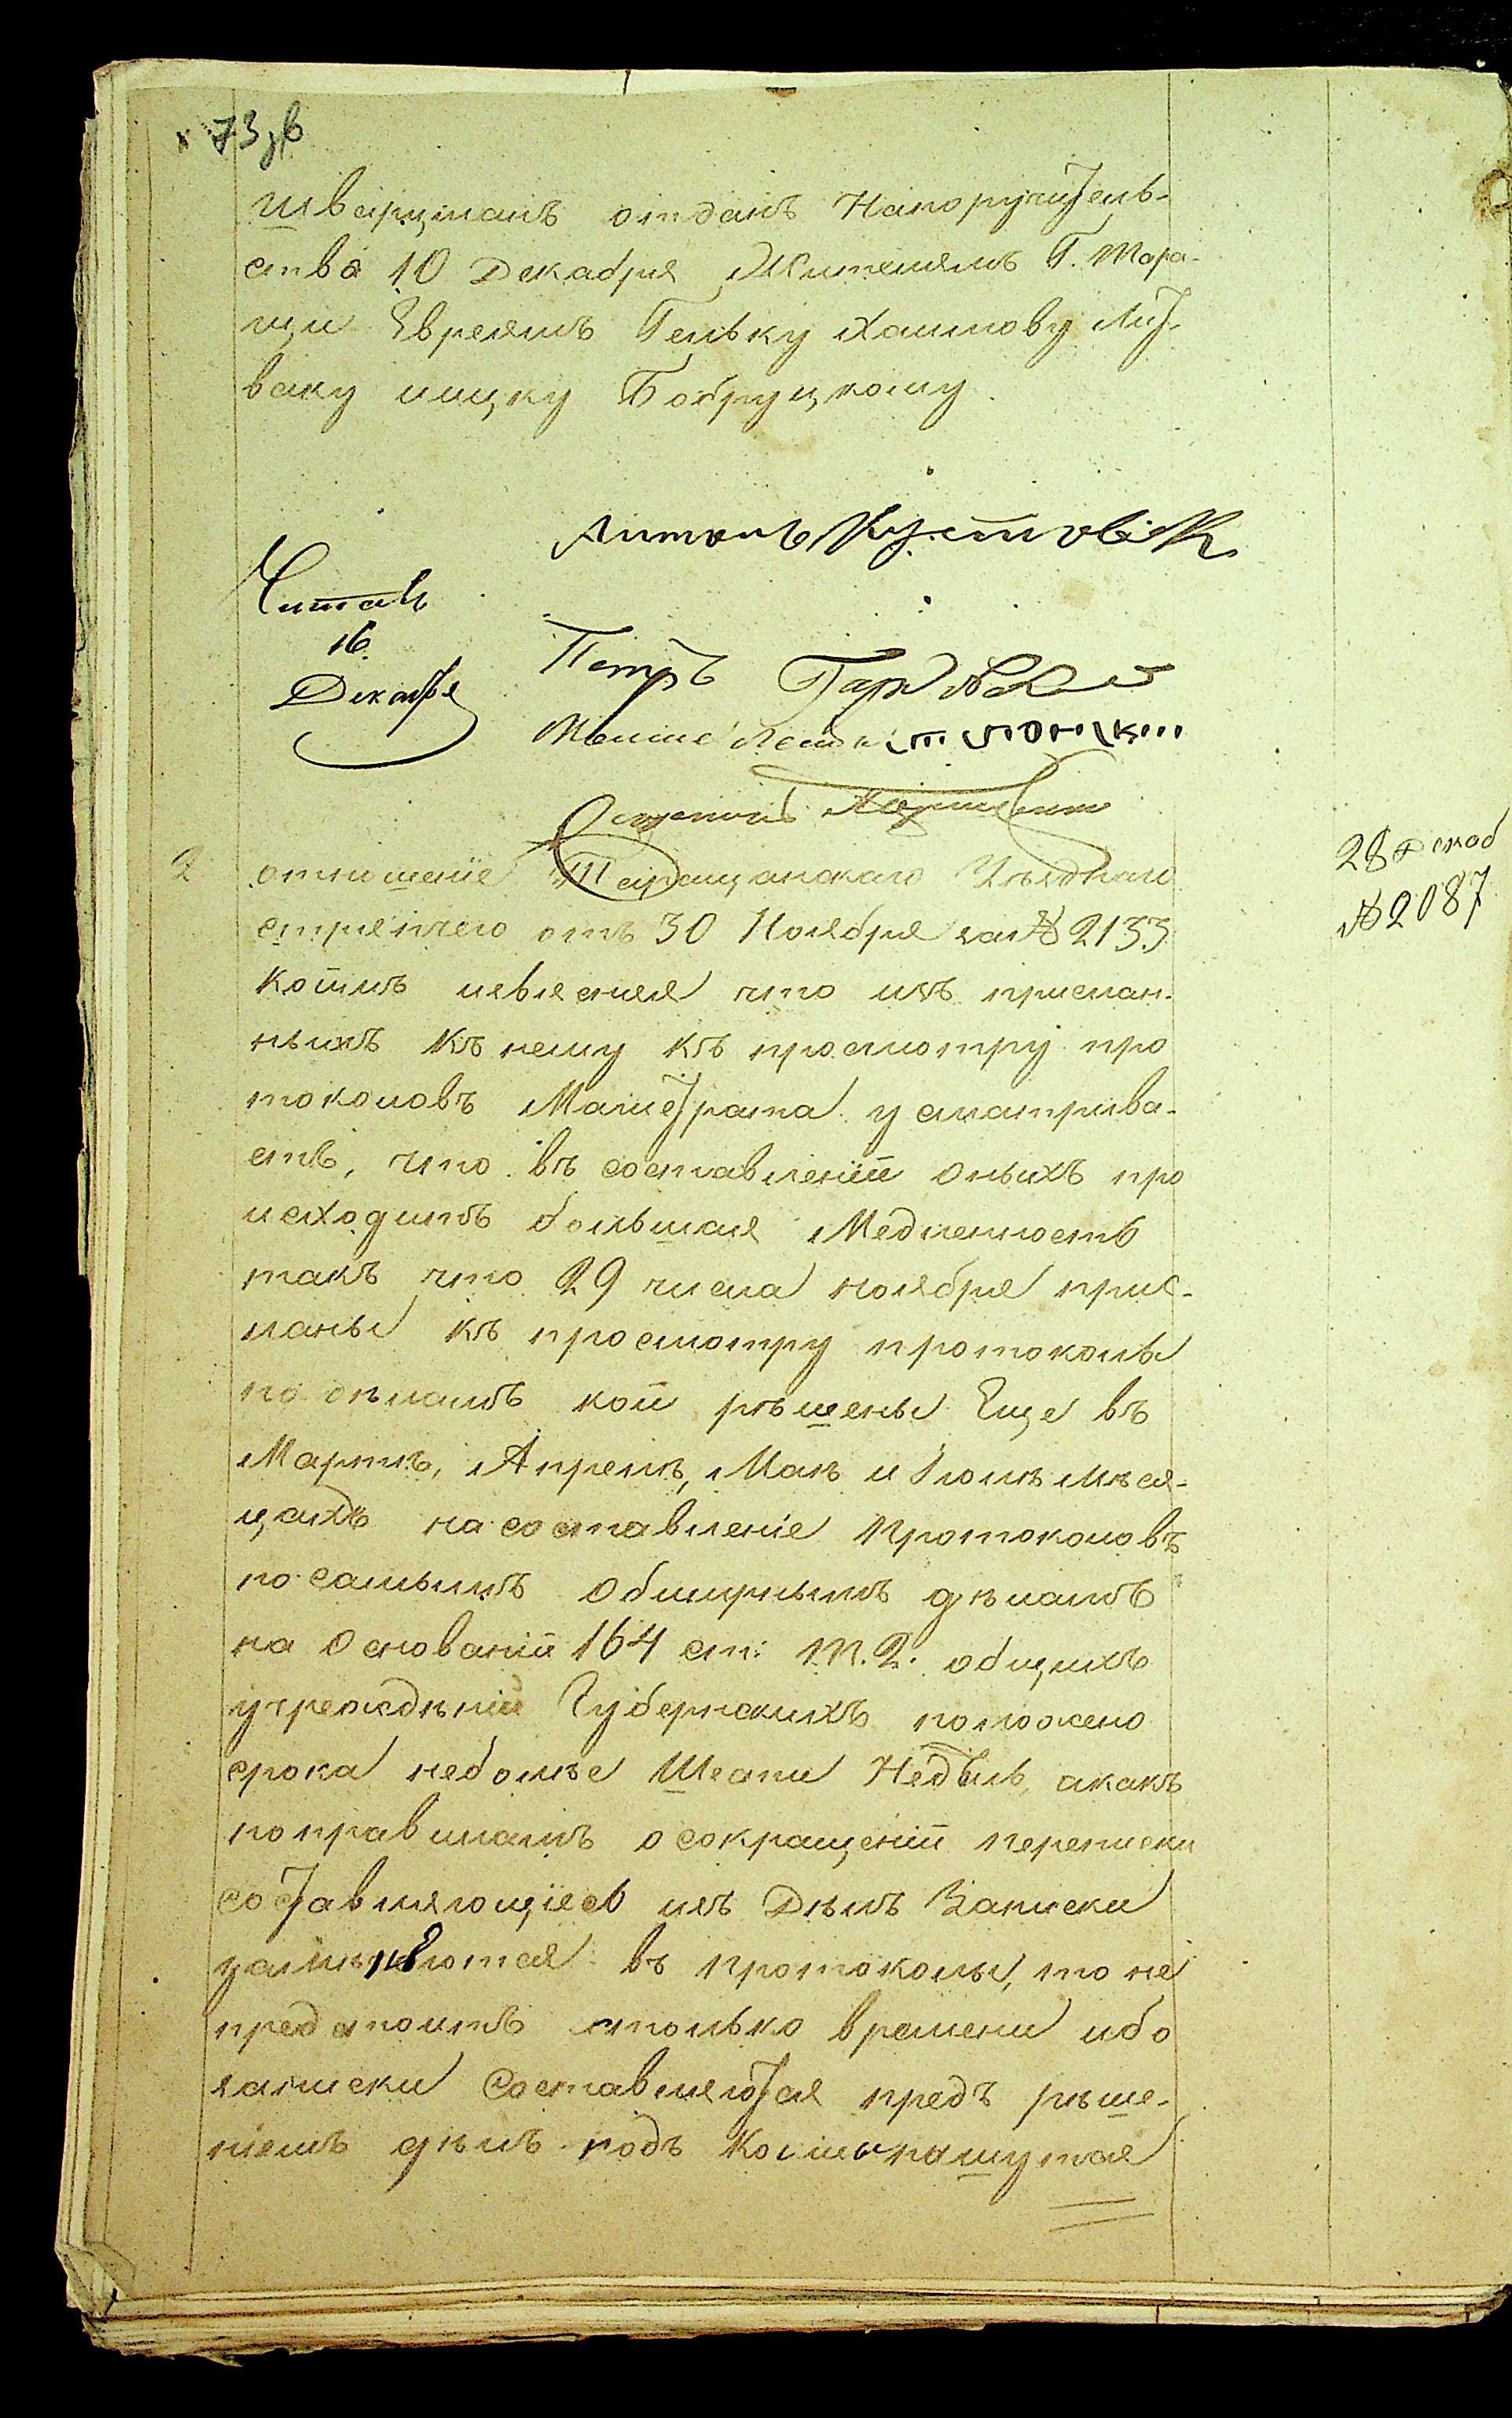 73зв
шварцманъ отданъ Напоручитель-
ства 10 Декабря Жителямъ Г. Тора-
щи Евреямъ Гельку Хаимову Лит-
ваку ицку Бобруцкому.
Антонъ
Читалъ
16
Декабря
Петръ
Мошке
2 отношеніе Таращанскаго Уѣзднаго
28 Декаб
№ 2087
стряпчего отъ 30 Ноября за № 2133
коимъ изъясняя что изъ прислан-
ныхъ къ нему къ просмотру про
токоловъ Магистрата усматрива-
етъ, что въ составленіи оныхъ про
исходитъ большая Медленность
такъ что 29 числа ноября прис-
ланы къ просмотру протоколы
по дѣламъ кои рѣшены Еще въ
Мартѣ, Апрелѣ, Маѣ и Іюлѣ мѣся-
цахъ на составленіе протоколовъ
по самымъ обширнымъ дѣламъ
на Основаніи 164 ст: т. 2. общихъ
учрежденій Губернскихъ положено
срока неболѣе Шести Недѣль, акакъ
поправиламъ осокращеніи переписки
составляющіесь изъ Дѣлъ Записки
замѣняются въ протоколы, то не
предстоитъ столько времени ибо
записки Составляются предъ рѣше-
ніемъ дѣлъ подъ коими пашутся